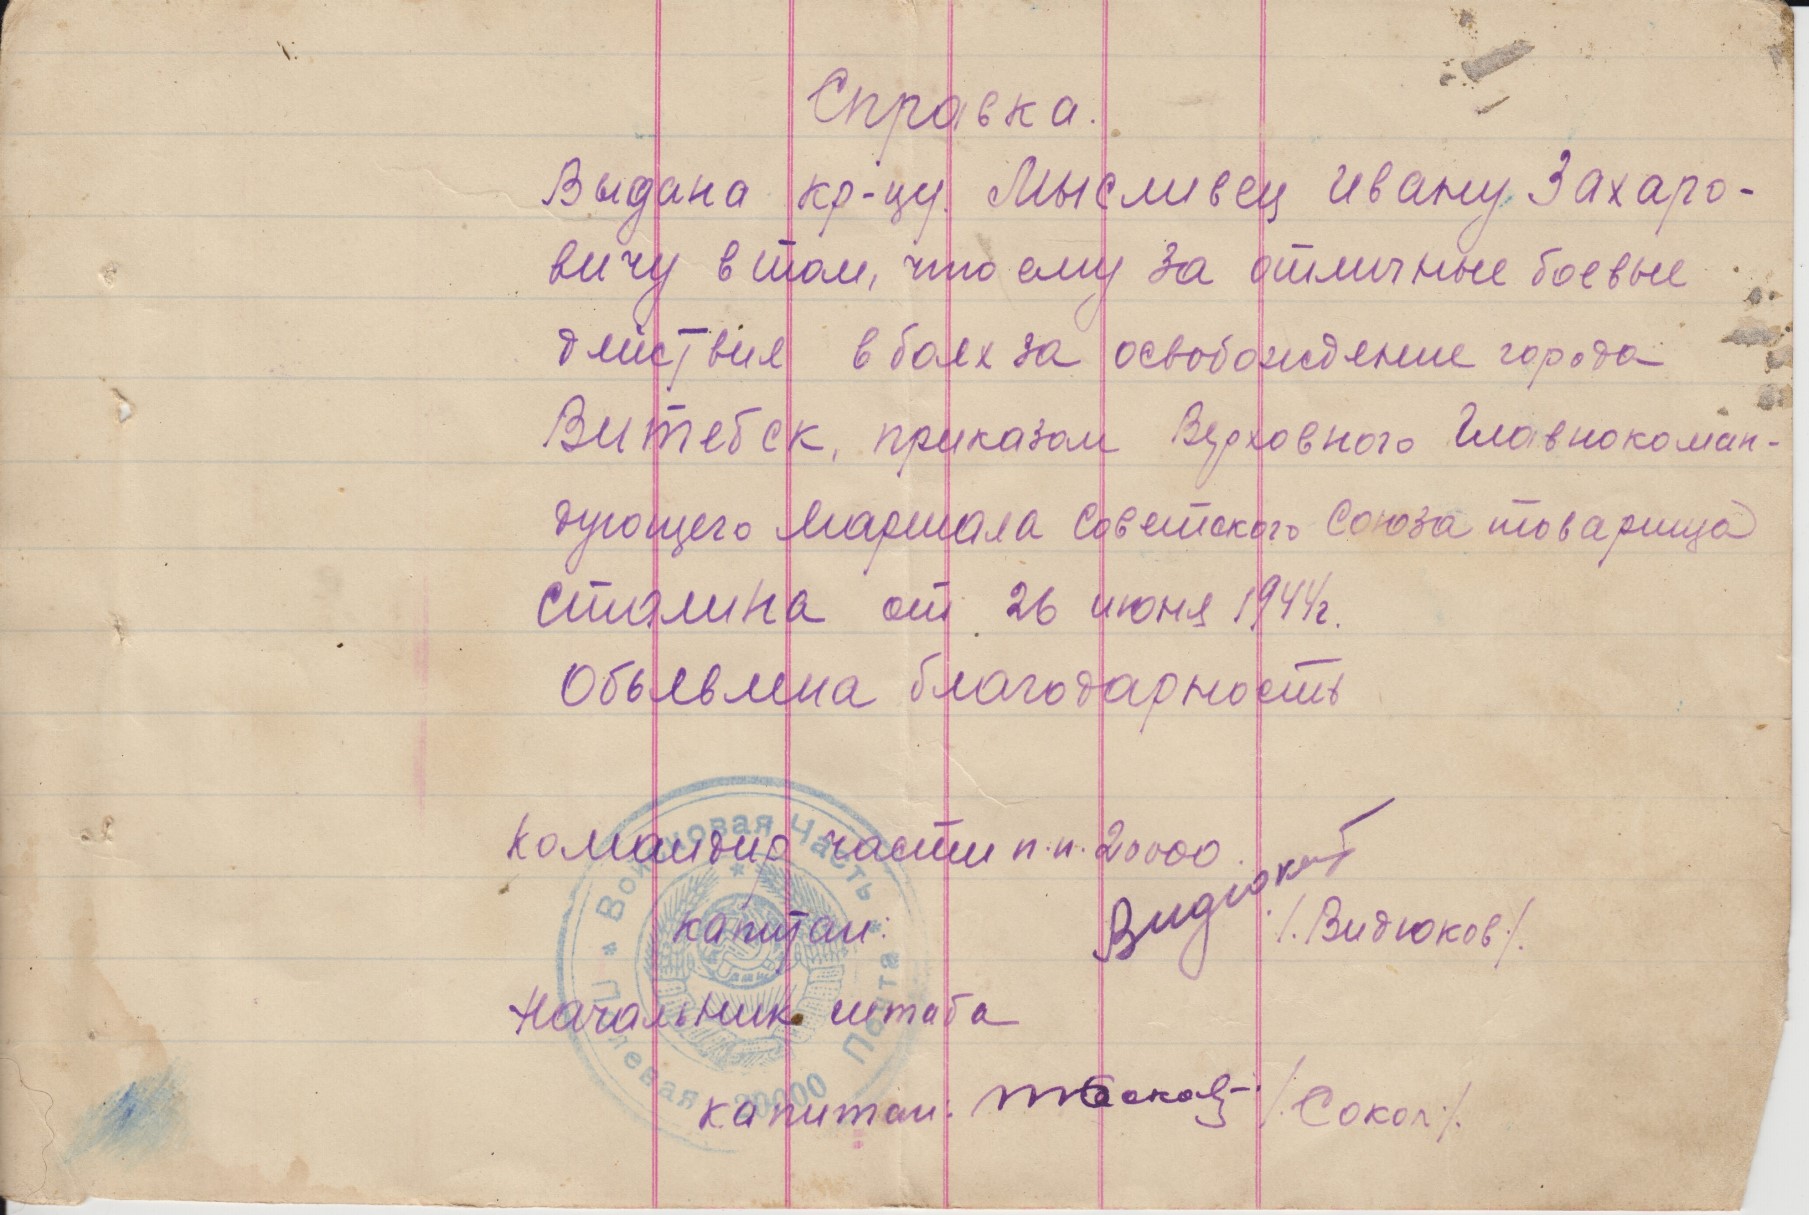 Справка.
Выдана кр-цу. Мысливец Ивану Захаро-
вичу в том, что ему за отличные боевые
действия в боях за освобождение города
Витебск, приказом Верховного Главнокоман-
дующего Маршала Советского Союза товарища
Сталина от 26 июня 1944г.
Обьявлена благодарность
Командир части п.п. 20000.
капитан: Видюков /.Видюков/.
Начальник штаба
капитан: /.Сокол/.
Войсковая Часть
Полевая Почта
20000